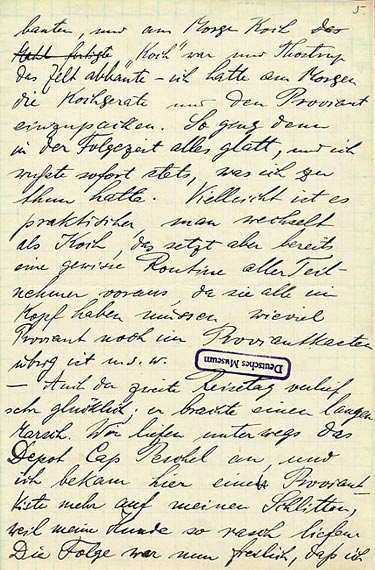 5.
bauten, und am Morge Koch das
Mahl fertigte "Koch" war und Thostrup
das Zelt abbaute – ich hatte am Morgen
die Kochgeräte und den Proviant
einzupacken. So ging denn
in der Folgezeit alles glatt, und ich
wußte sofort stets, was ich zu
thun hatte. Vielleicht ist es
praktischer man wechselt
als Koch, das setzt aber bereits
eine gewisse Routine aller Teil-
nehmer voraus, da sie alle im
Kopf haben müssen wieviel
Proviant noch im Proviantkasten
übrig ist u.s.w.
Deutsches Museum
– Auch der zweite Reisetag verlief
sehr glücklich; er brachte einen langen
Marsch. Wir liefen unterwegs das
Depot Cap Peschel an, und
ich bekam hier eine Proviant-
kiste mehr auf meinen Schlitten,
weil meine Hunde so rasch liefen.
Die Folge war nun freilich, daß ich